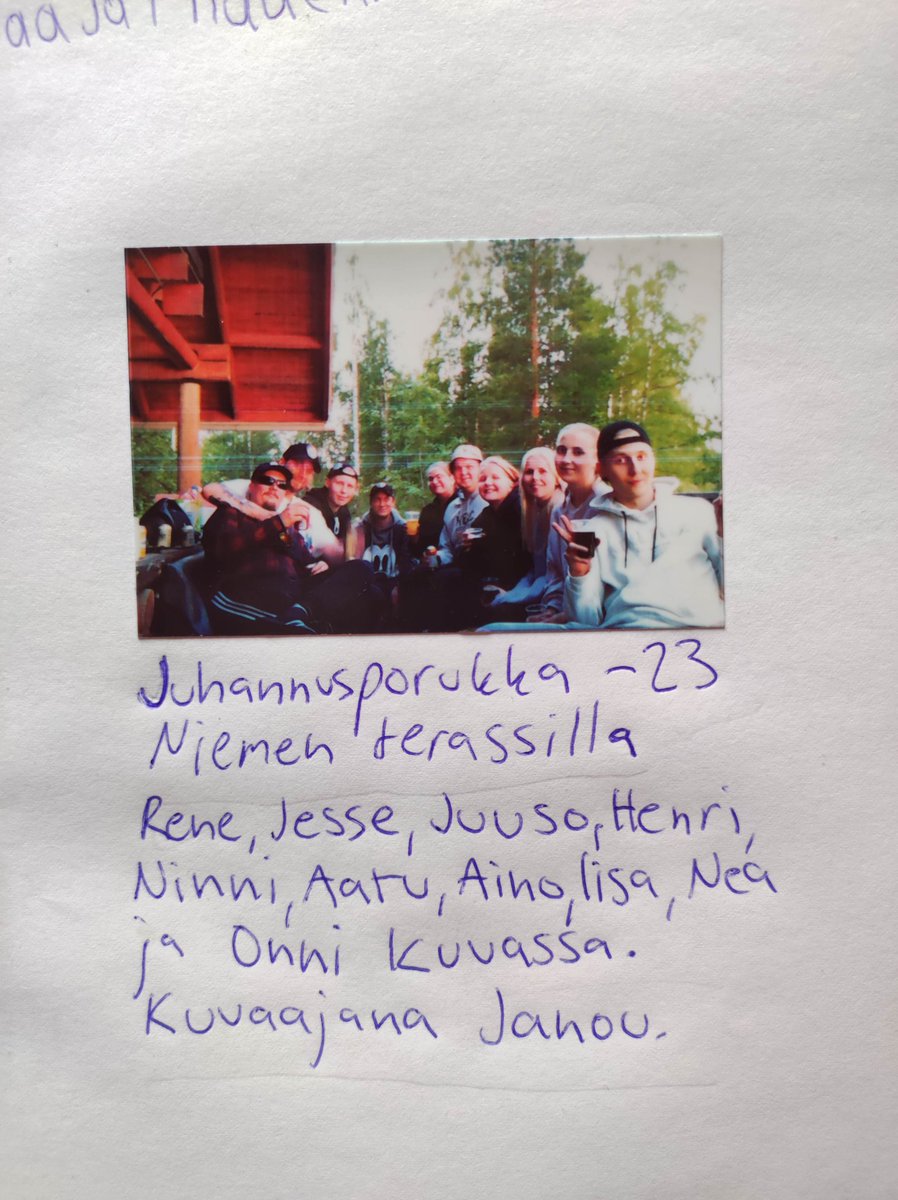 Juhannusporukka -23
Niemen terassilla
Rene, Jesse, Juuso, Henri,
Ninni, Aatu, Aino, Iisa, Nea
ja Onni kuvassa.
Kuvaajana Janou.